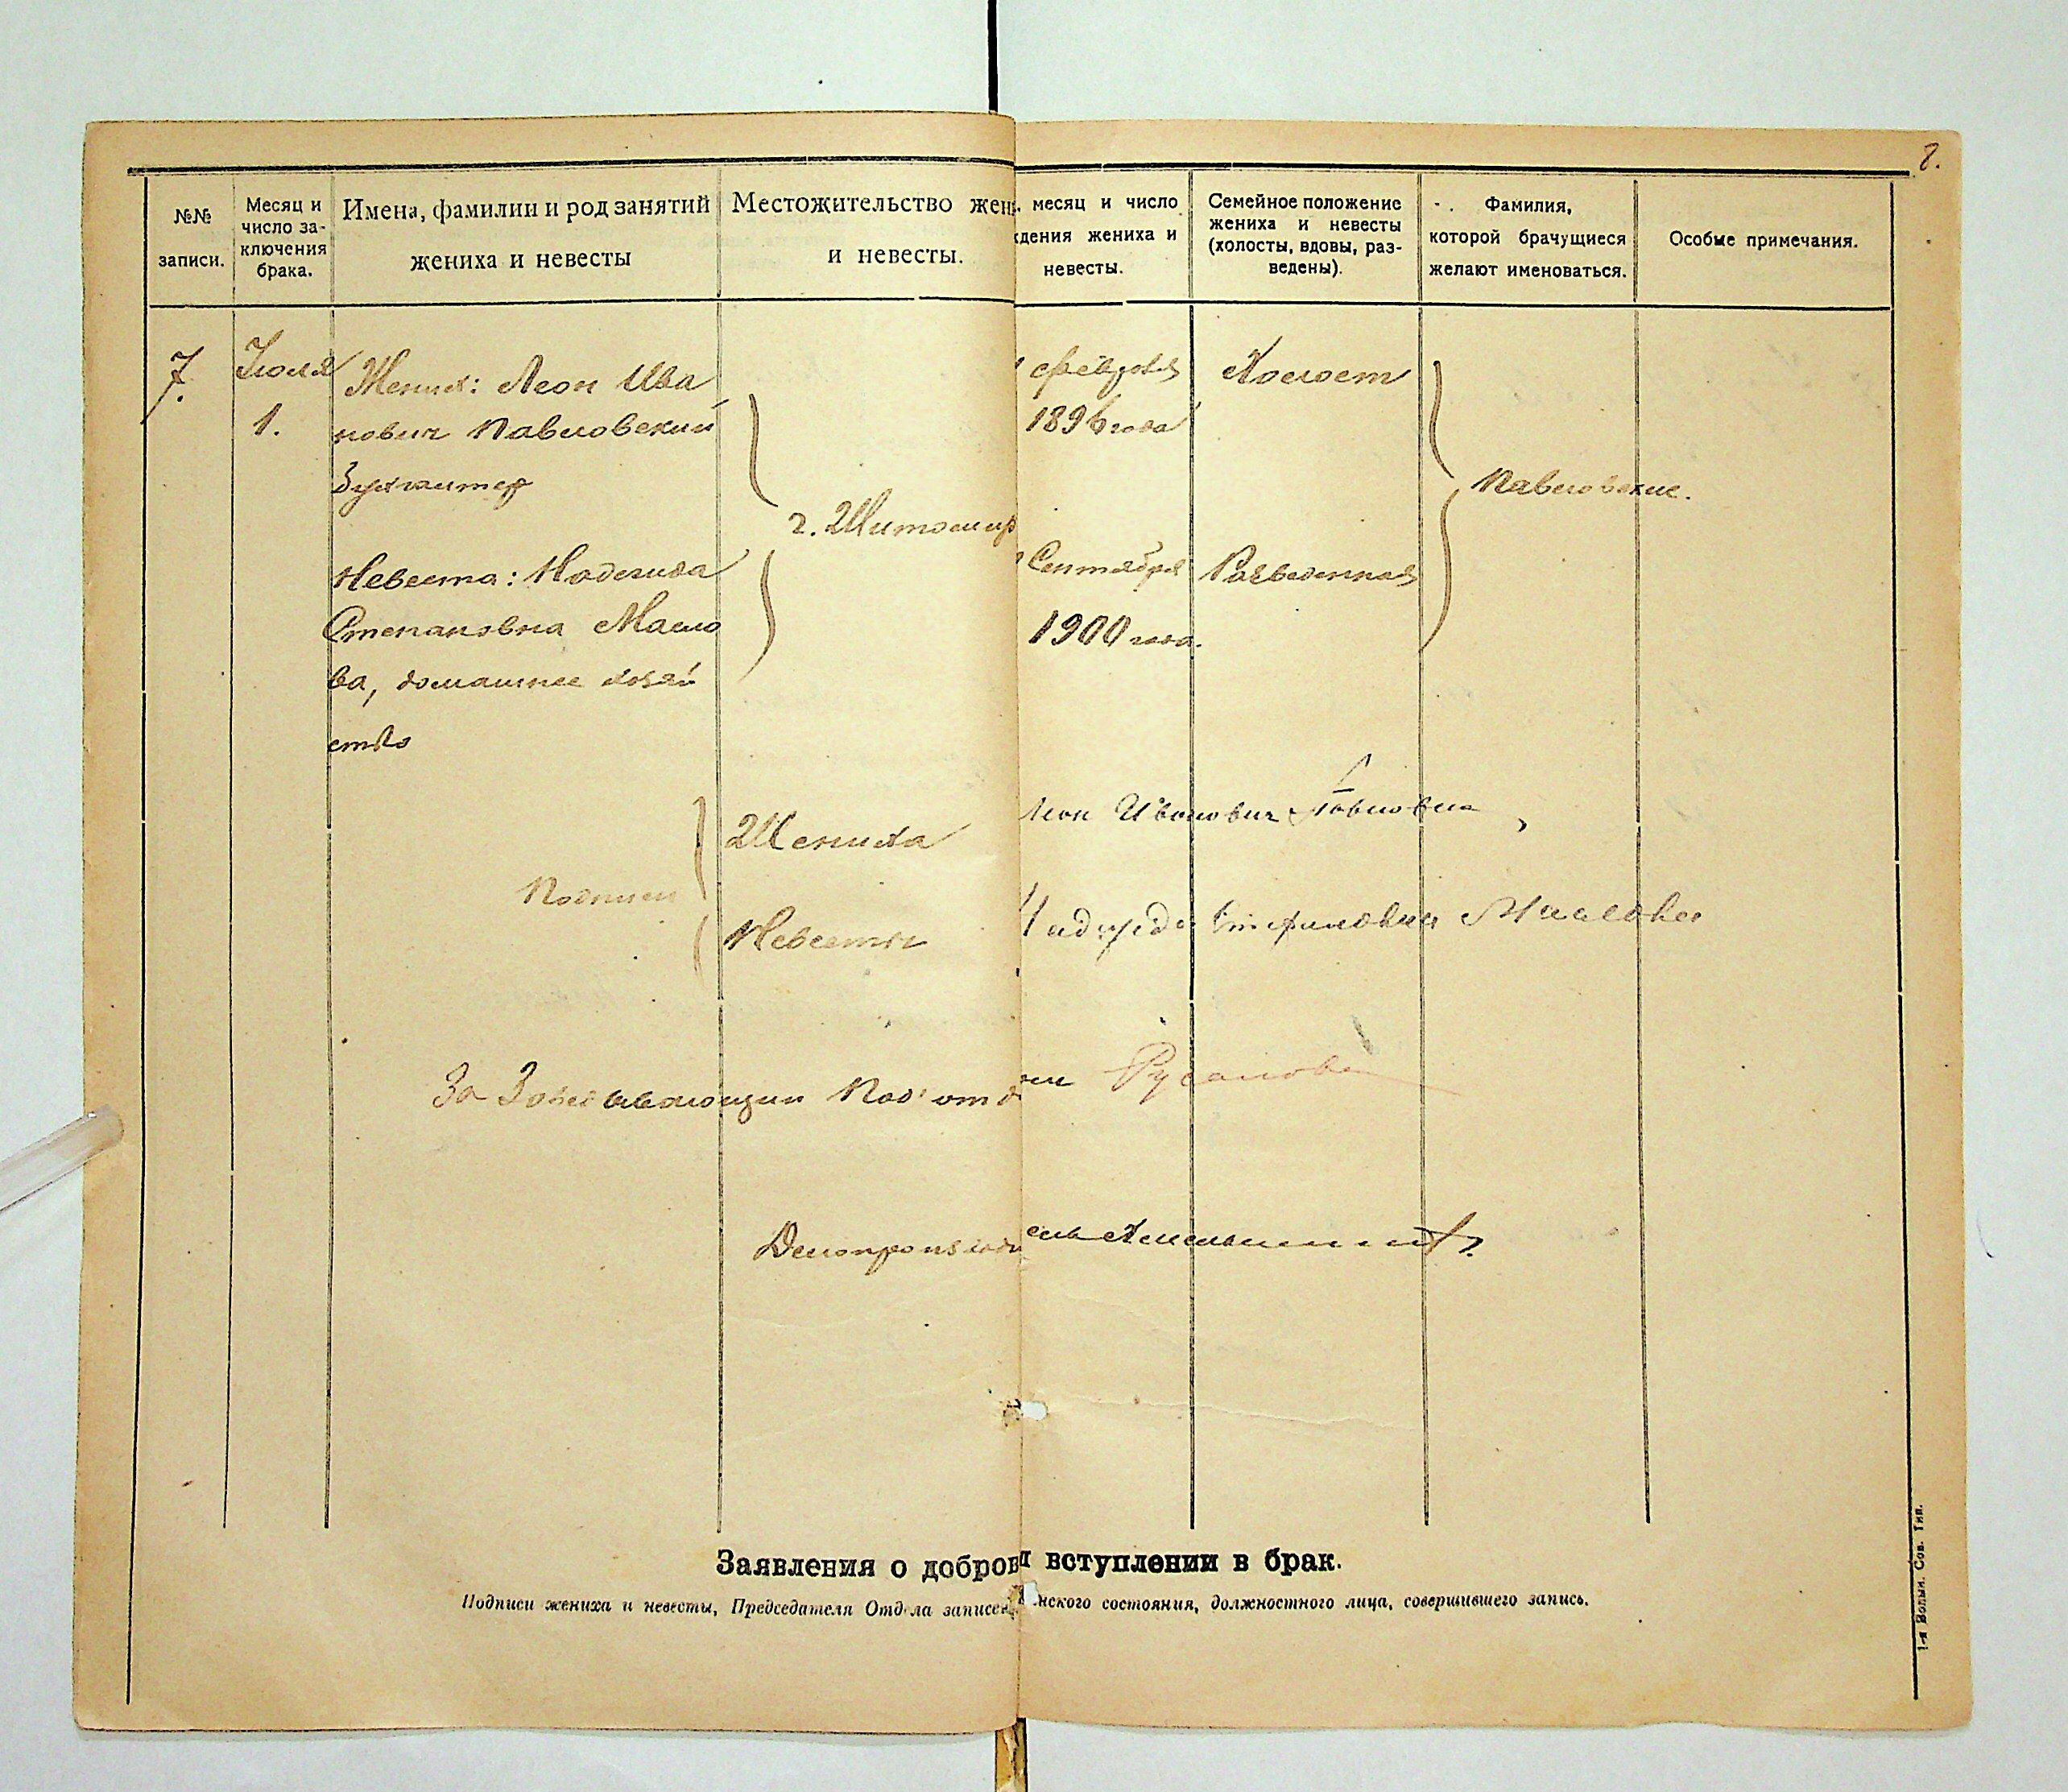 8.
№№ записи.
Месяц и число за-
ключения
брака.
Имена, фамилии и род занятий
жениха и невесты
Местожительство жен
и невесты.
месяц и число
ждения жениха и
невесты.
Семейное положение
жениха и невесты
(холосты, вдовы, раз-
ведены).
Фамилия,
которой брачущиеся
желают именоваться.
Особые примечания.
7.
Июля
1.
Жених: Леон Ива
нович Павловский
Бухгалтер
Невеста: Надежда
Степановна Масло
ва, домашнее хозяй
ство
г. Житомир
февраля
1896 года
Сентября
1900 года.
Холост
Разведенная
Павловские.
Подписи
Жениха
Леон Иванович
Невесты
Надежда Маслова
За Заведывающий Под'отд
Русанова
Делопроизводи
ель
Заявления о добров
вступлении в брак.
Подписи жениха и невесты, Председателя Отдела записей
нского состояния, должностного лица, совершившего запись.
1-я Волын. Сов. Тип.